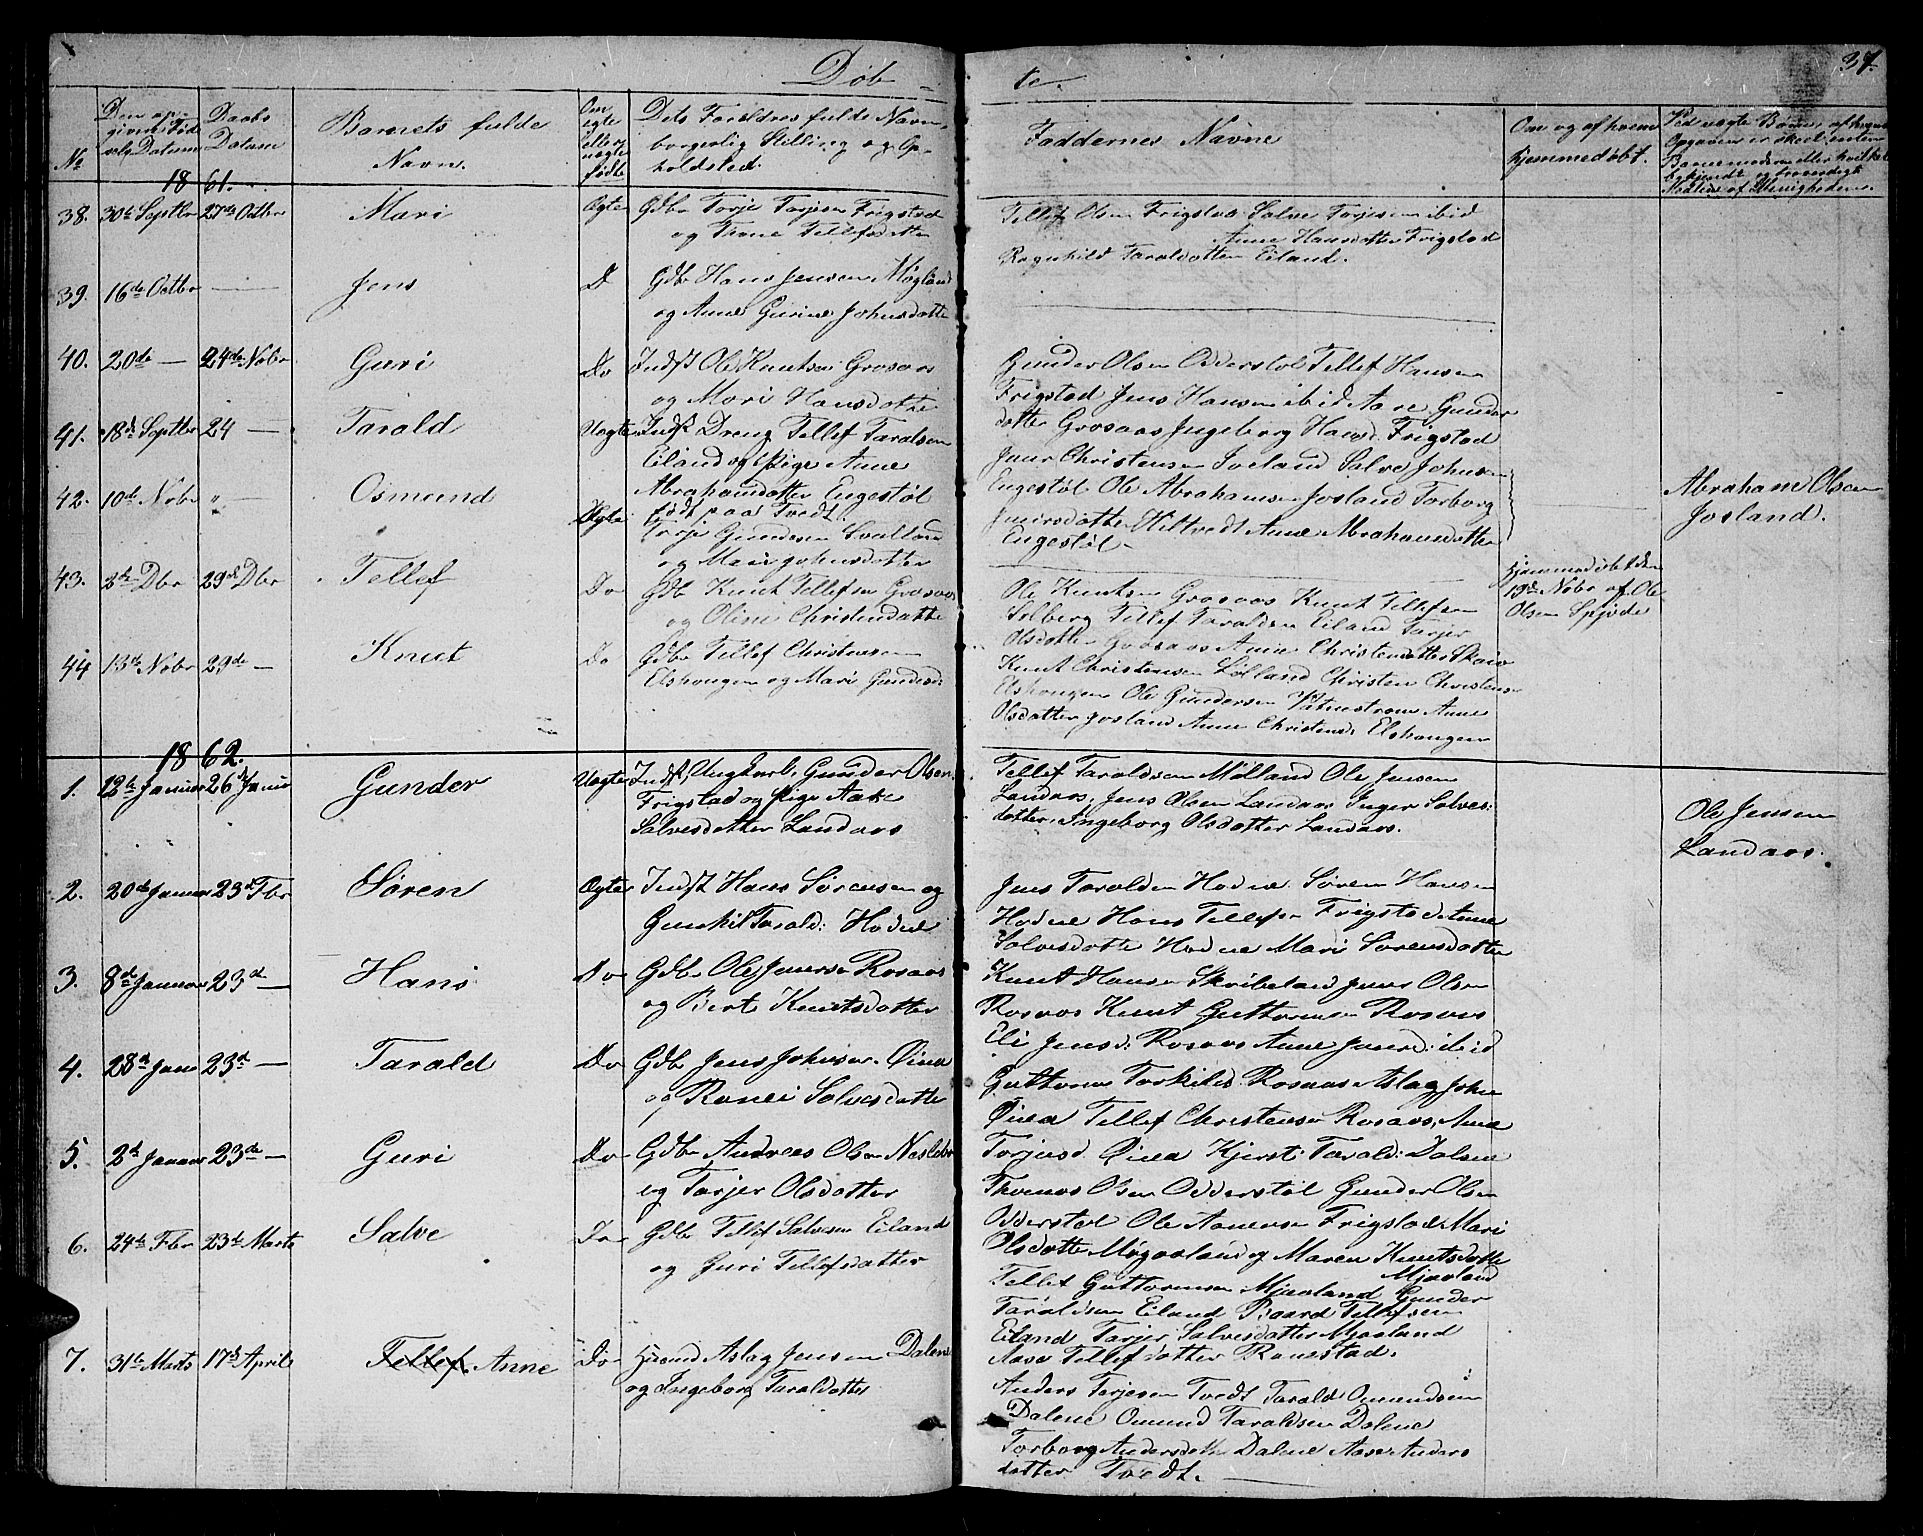 Døb - te.
37.
No
Den op-
givne Fød-
selg Datum
Daabs
Datum
Barnets fulde
Navn.
Om
egte
eller
uegte
fødte
Dets Forældres fulde Navn,
borgerlig Stilling og Op-
holdsted.
Faddernes Navne
Om og af hvem
hjemmedøbt.
Ved uegte Børn, af hvem
Opgaven er skeet, enten
Barnemoderen eller hvilket
bekjendt og troværdigt
Medlem af Menigheden.
1861.
38. 30te Septbr 27de Octbr Mari Ægte Gdbr Torje Torjesen Frigstad
og Tone Tellefsdatter
Tellef Olsen Frigstad Salve Torjesen ibid
Anne Hansdatter Frigstad
Ragnhild Taraldsdatter Eiland.
39. 16de Octbr — Jens Do Gdbr Hans Jensen Møgland
og Anne Gurine Johnsdatter
40. 20de — 24de Nobr Guri Do Indst Ole Knutsen Grosaas
og Mari Hansdatter
Gunder Olsen Odderstøl Tellef Hansen
Frigstad Jens Hansen ibid Aase Gunder
datter Grosaas Ingeborg Hansd. Frigstad
41. 18de Septbr 24 — Tarald Uegte Indst Dreng Tellef Taralsen
Eiland og Pige Anne
Abrahamdatter Engestøl
født paa Tvedt.
Jens Christensen Iveland Salve Johnsen
Engestøl Ole Abrahamsen Josland Torborg
Jeirsdatter Hiltvedt Anne Abrahamsdatter
Engestøl.
Abraham Olsen
Josland.
42. 10de Nobr " — Osmund Ægte Terje Gundersen
og Mari Johnsdatter
43. 2de Dbr 29de Dbr Tellef Do Gdbr Knut Tellefsen Grosaas
og Oline Christensdatter
Ole Knutsen Grosaas Knut Tellefsen
Solberg Tellef Taraldsen Eiland Tarjer
Olsdatter Grosaas Anne Christensdatter Skaiv
Hjemmedøbt den
19de Nobr af Ole
Olsen Spjode
44 13de Nobr 29de — Knut Do Gdbr Tellef Christensen
Elshougen og Mari Gundersd:
Knut Christensen Lølland Christen Christens
Elshougen Ole Gundersen Vatnstrom Anne
Olsdatter Josland Anne Christensd. Elshougen
1862.
1. 12te Januar 26de Januar Gunder Uegte Indst, Ungkarl, Gunder Olsen
Frigstad og Pige Aase
Salvesdatter Landaas
Tellef Taraldsen Mølland Ole Jensen
Landaas, Jens Olsen Landaas Inger Salves-
datter, Ingeborg Olsdatter Landaas.
Ole Jensen
Landaas.
2. 20de Januar 23d Fbr Søren Ægte Indst Hans Sørensen og
Gunhil Tarald: Hodne
Jens Taralden Hodne Søren Hansen
Hodne Hans Tellefsen Frigstad Anne
Salvesdatter Hodne Mari Sørensdatter
3. 8de Januar 23de — Hans Do Gdbr Ole Jensen Rosaas
og Berte Knutsdatter
Knut Hansen Skribeland Jens Olsen
Rosaas Knut Guttormsen Rosaas
Eli Jensd: Rosaas Anne Jensd: ibid
4. 28d Janu 23de — Tarald Do Gdbr Jens Johnsen Øina
og Ronei Salvesdatter
Guttorm Torkilds. Rosaas Aslag John
Øina Tellef Christensen Rosaas, Anne
Torjusd Øina Kjersti Tarald: Dalene
5. 2de Januar 23de — Guri Do Gdbr Andreas Olsen
og Tarjer Olsdatter
Thomas Olsen Odderstøl Gunder Olsen
Odderstøl Ole Aanensen Frigstad Mari
Olsdatter Møgaaland og Maren Knutsdatter
Mjaaland
6. 24de Fbr 23de Marts Salve Do Gdbr Tellef Salvesen Eiland
og Guri Tellefsdatter
Tellef Guttormsen Mjaaland Gunder
Taraldsen Eiland Baard Tellefsen
Eiland Tarjer Salvesdatter Mjaaland
Aase Tellefsdatter Ronestad.
7. 31te Marts 17de Aprile Tellef. Anne Do Huusmd Aslag Jensen Dalene
og Ingeborg Taraldsdatter
Anders Terjesen Tvedt Tarald Omundsen
Dalene Omund Taraldsen Dalene
Torborg Andersdatter Dalene Aase Anders
datter Tvedt.